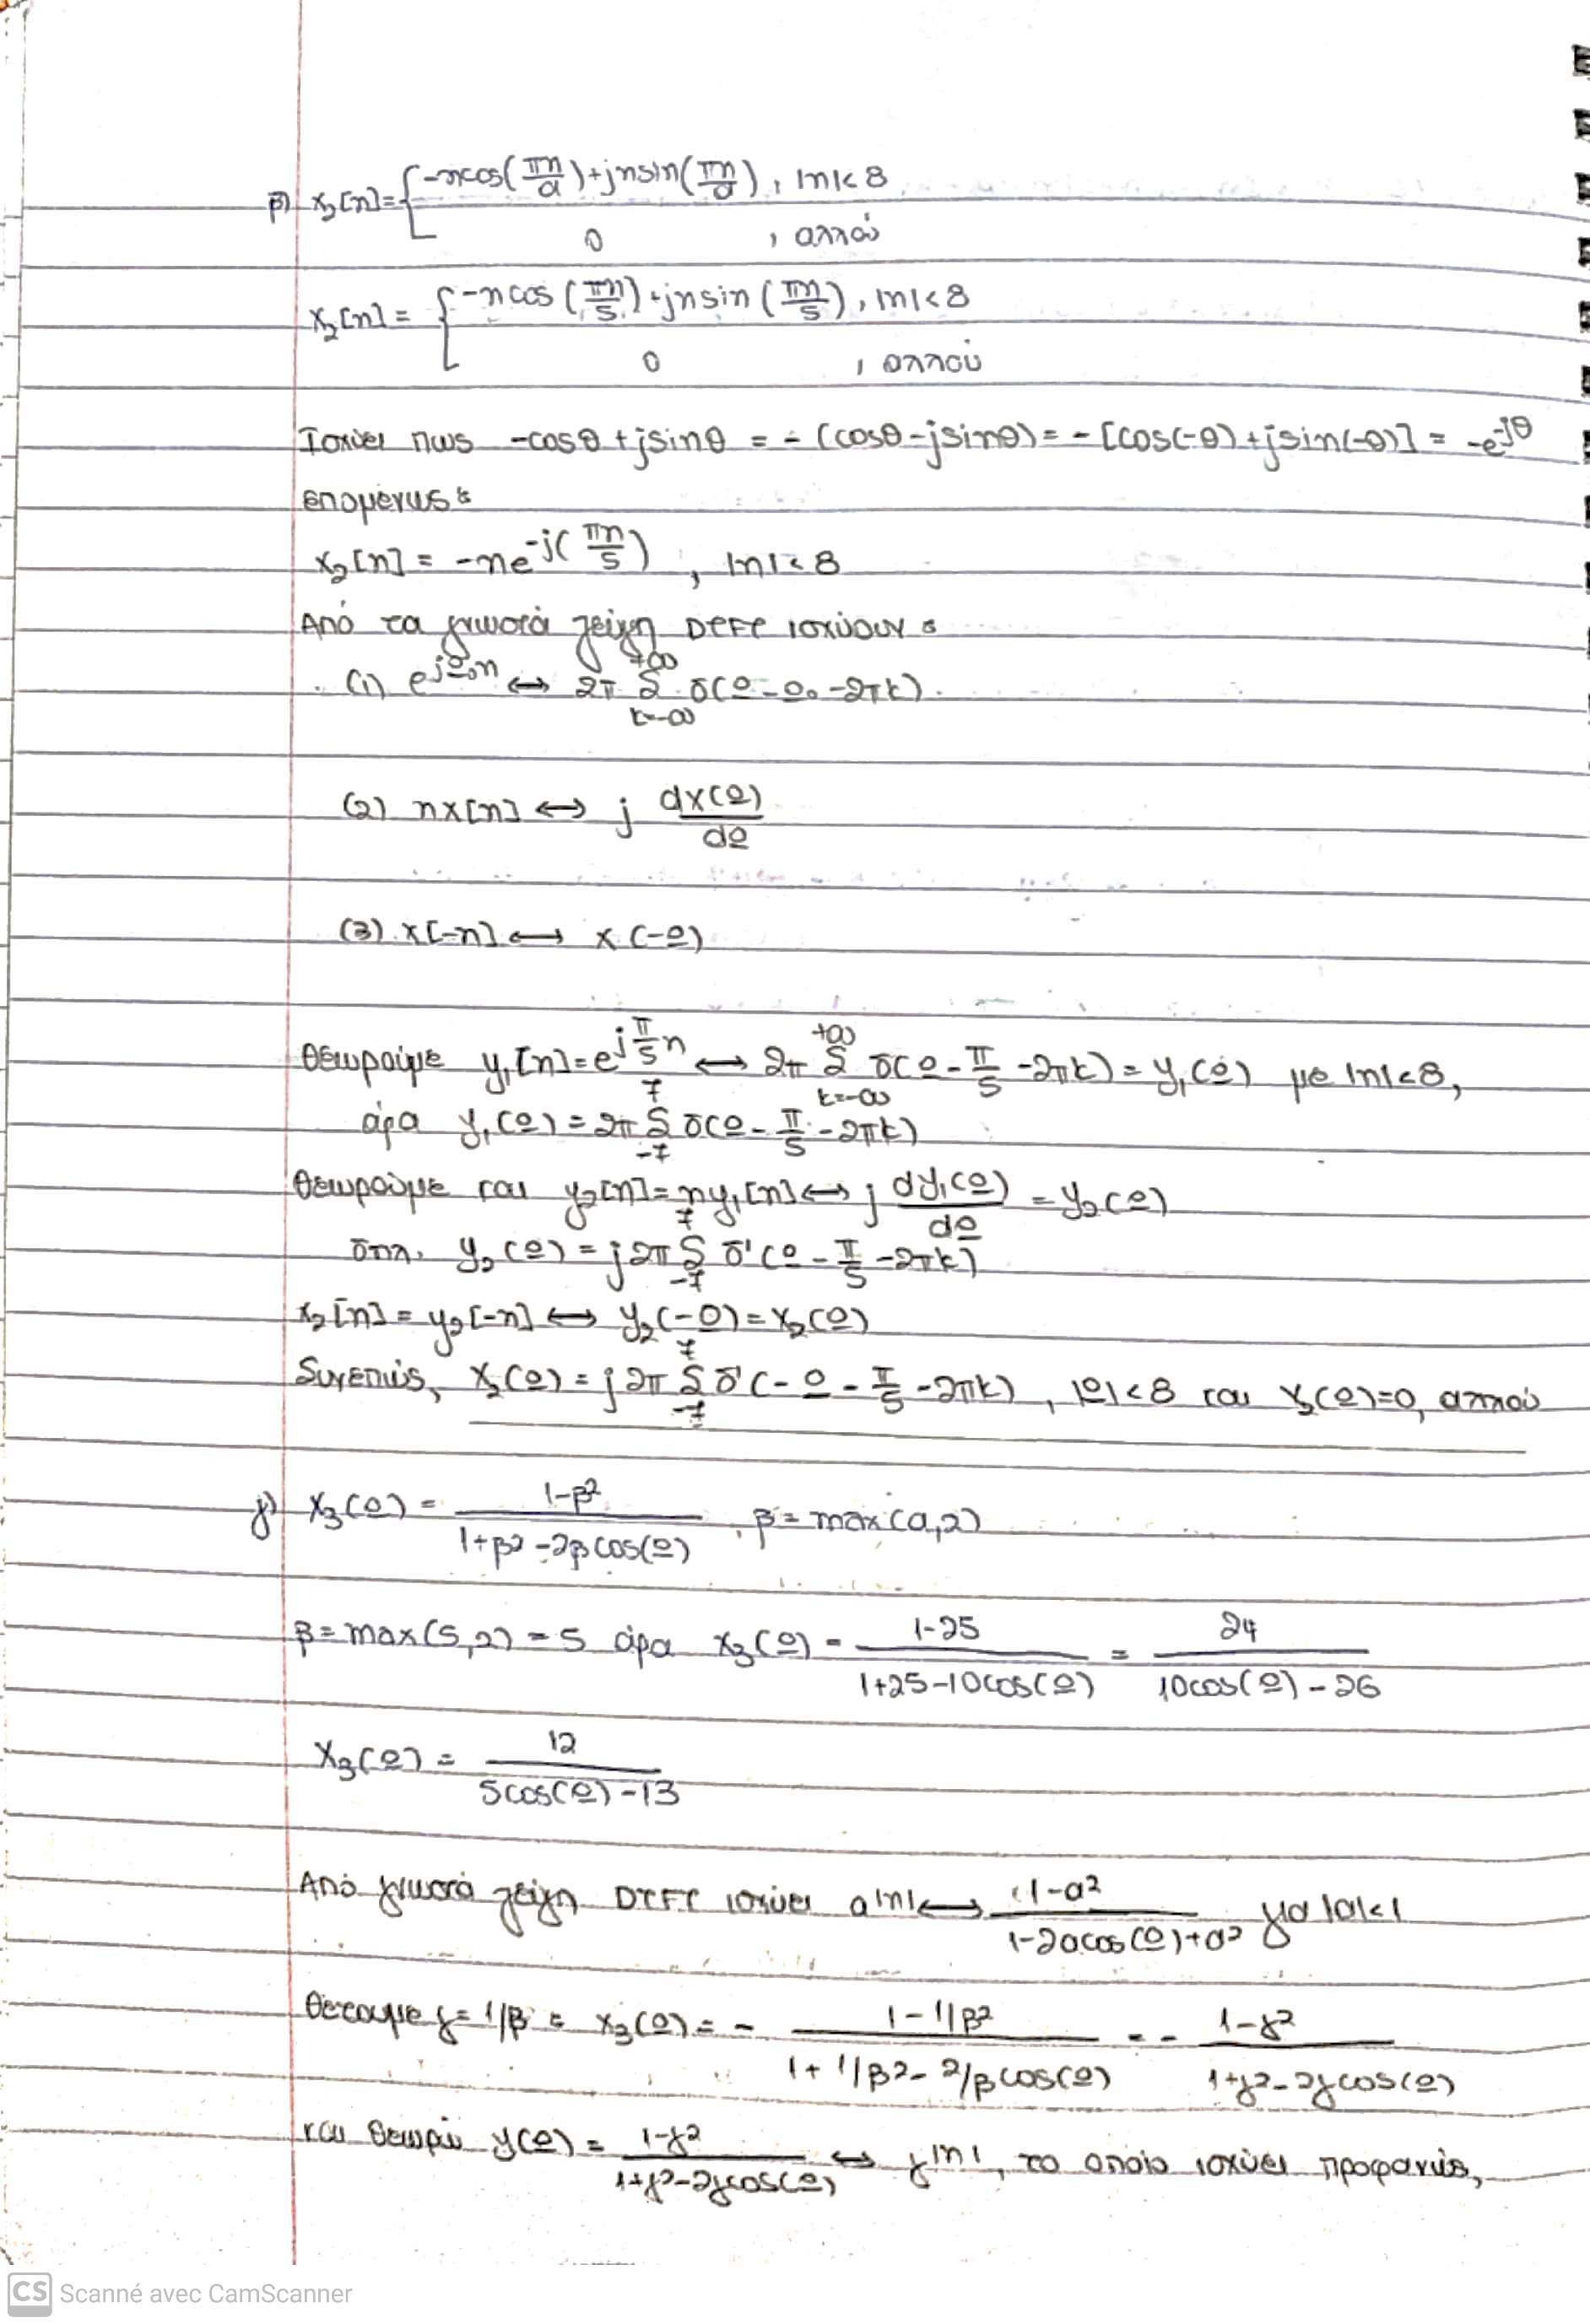 β) x₂[n]= { -ncos(πn/a)+jnsin(πn/a), |n|<8
0 , αλλού
x₂[n]= { -ncos(πn/5)+jnsin(πn/5), |n|<8
0 , αλλού
Ισχύει πως -cosθ+jsinθ = -(cosθ-jsinθ) = -[cos(-θ)+jsin(-θ)] = -e^-jθ
επομένως:
x₂[n] = -ne^-j(πn/5) , |n|<8
Από τα γνωστά ζεύγη DTFT ισχύουν:
(1) e^jΩ₀n ↔ 2π Σ_{k=-∞}^{+∞} δ(Ω-Ω₀-2πk)
(2) nx[n] ↔ j dX(Ω)/dΩ
(3) x[-n] ↔ X(-Ω)
Θεωρούμε y₁[n]=e^{jπ/5 n} ↔ 2π Σ_{k=-∞}^{+∞} δ(Ω-π/5-2πk)=Y₁(Ω) με |n|<8,
άρα Y₁(Ω)=2π Σ_{-7}^{7} δ(Ω-π/5-2πk)
Θεωρούμε και y₂[n]=ny₁[n] ↔ j dY₁(Ω)/dΩ = Y₂(Ω)
δηλ. Y₂(Ω)=j2π Σ_{-7}^{7} δ'(Ω-π/5-2πk)
x₂[n]=y₂[-n] ↔ Y₂(-Ω)=X₂(Ω)
Συνεπώς, X₂(Ω)=j2π Σ_{-7}^{7} δ'(-Ω-π/5-2πk), |Ω|<8 και X₂(Ω)=0, αλλού
γ) X₃(Ω)= (1-β²)/(1+β²-2βcos(Ω)) , β=max(a,2)
β=max(5,2)=5 άρα X₃(Ω)= (1-25)/(1+25-10cos(Ω)) = 24/(10cos(Ω)-26)
X₃(Ω)= 12/(5cos(Ω)-13)
Από γνωστά ζεύγη DTFT ισχύει a^|n| ↔ (1-a²)/(1-2acos(Ω)+a²) για |a|<1
Θέτουμε γ=1/β: X₃(Ω)= - (1-1/β²)/(1+1/β²-2/βcos(Ω)) = - (1-γ²)/(1+γ²-2γcos(Ω))
και θεωρώ Y(Ω)= (1-γ²)/(1+γ²-2γcos(Ω)) ↔ γ^|n|, το οποίο ισχύει προφανώς,
CS Scanné avec CamScanner